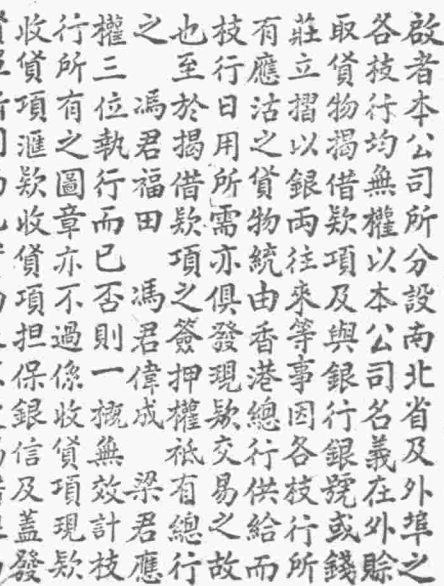 啟者本公司所分設南北省及外埠之
各枝行均無權以本公司名義在外賒
取貨物揭借欵項及與銀行銀號或錢
莊立摺以銀兩往來等事因各枝行所
有應沽之貨物統由香港總行供給而
枝行日用所需亦俱發現欵交易之故
也至於揭借欵項之簽押權祗有總行
之 馮君福田 馮君偉成 梁君應
權三位執行而已否則一概無效計枝
行所有之圖章亦不過係收貨項現欵
收貨項滙欵收貨項担保銀信及蓋發